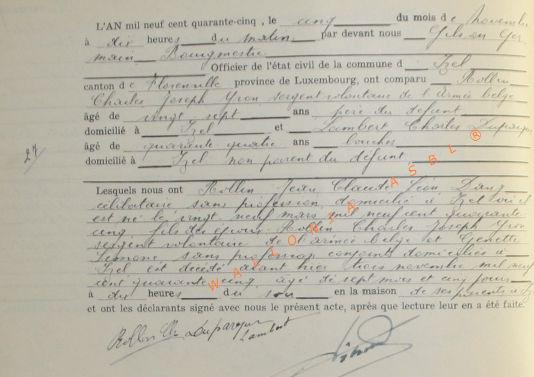 L'AN mil neuf cent quarante-cinq, le cinq du mois de Novembre
à dix heures du matin par devant nous Gilson Ger
main Bourgmestre
Officier de l'état civil de la commune d Izel
canton de Florenville province de Luxembourg, ont comparu Rollin
Charles Joseph Yvon sergent volontaire de l'Armée belge
âgé de vingt sept ans père du défunt
domicilié à Izel et Lambert Charles
âgé de quarante quatre ans boucher
domicilié à Izel non parent du défunt
27
Lesquels nous ont Rollin Jean Claude Léon
célibataire sans profession domicilié à Izel où il
est né le vingt neuf mars mil neuf cent quarante
cinq, fils des époux Rollin Charles Joseph Yvon
sergent volontaire de l'armée belge et
Simone sans profession conjoints domiciliés à
Izel est décédé avant hier trois novembre mil neuf
cent quarante cinq, âgé de sept mois et cinq jours
à dix heures du soir en la maison de ses parents à
et ont les déclarants signé avec nous le présent acte, après que lecture leur en a été faite.
Rollin
Lambert
WALLONIA ASBL ®